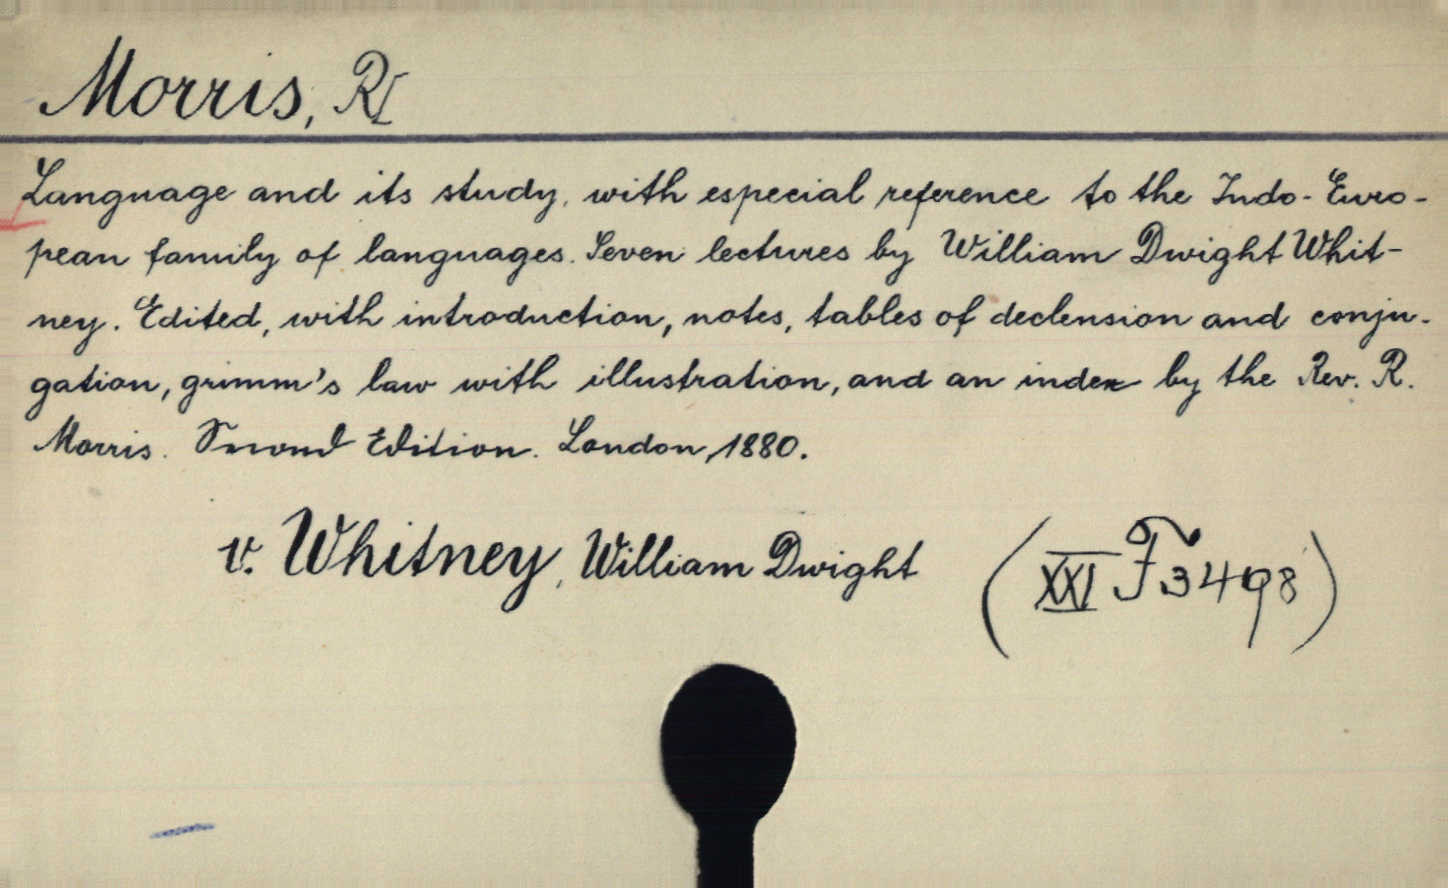 Morris, R[
Language and its study, with especial reference to the Indo-Euro-
pean family of languages. Seven lectures by William Dwight Whit-
ney. Edited, with introduction, notes, tables of declension and conju-
gation, grimm's law with illustration, and an index by the Rev. R.
Morris. Second Edition. London, 1880.
v. Whitney, William Dwight (XXI F 3498)